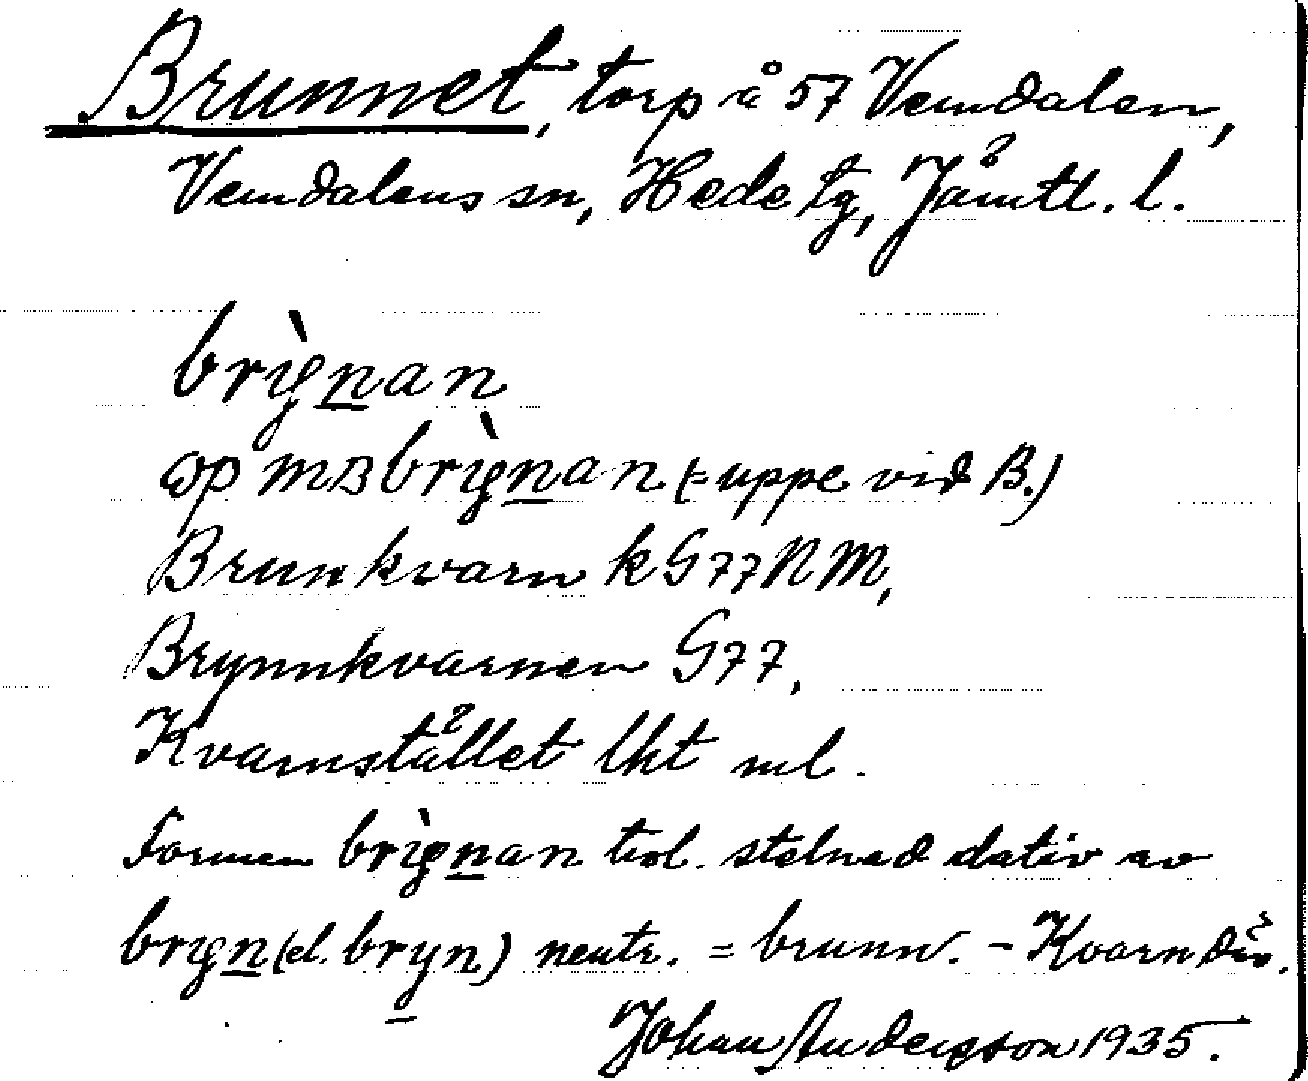 Brunnet, torp å 57 Vemdalen,
Vemdalens sn, Hede tg, Jämtl. l.
brìɡnan
op mB brìɡnan (= uppe vid B.)
Brunkvarn k G77 N M,
Brynnkvarnen G77,
Kvarnstället lkt ml.
Formen brìɡnan trol. stelnad dativ av
brɡn (el. bryn) neutr. = brunn. – Kvarn där.
Johan Anderson 1935.